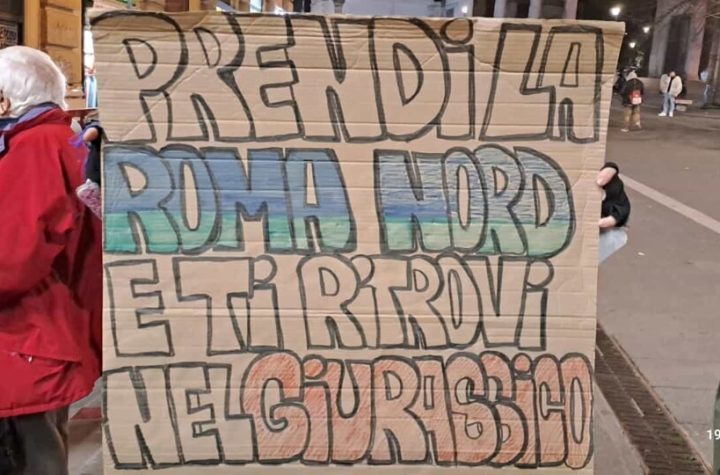 PRENDI LA
ROMA NORD
E TI RITROVI
NEL GIURASSICO
19